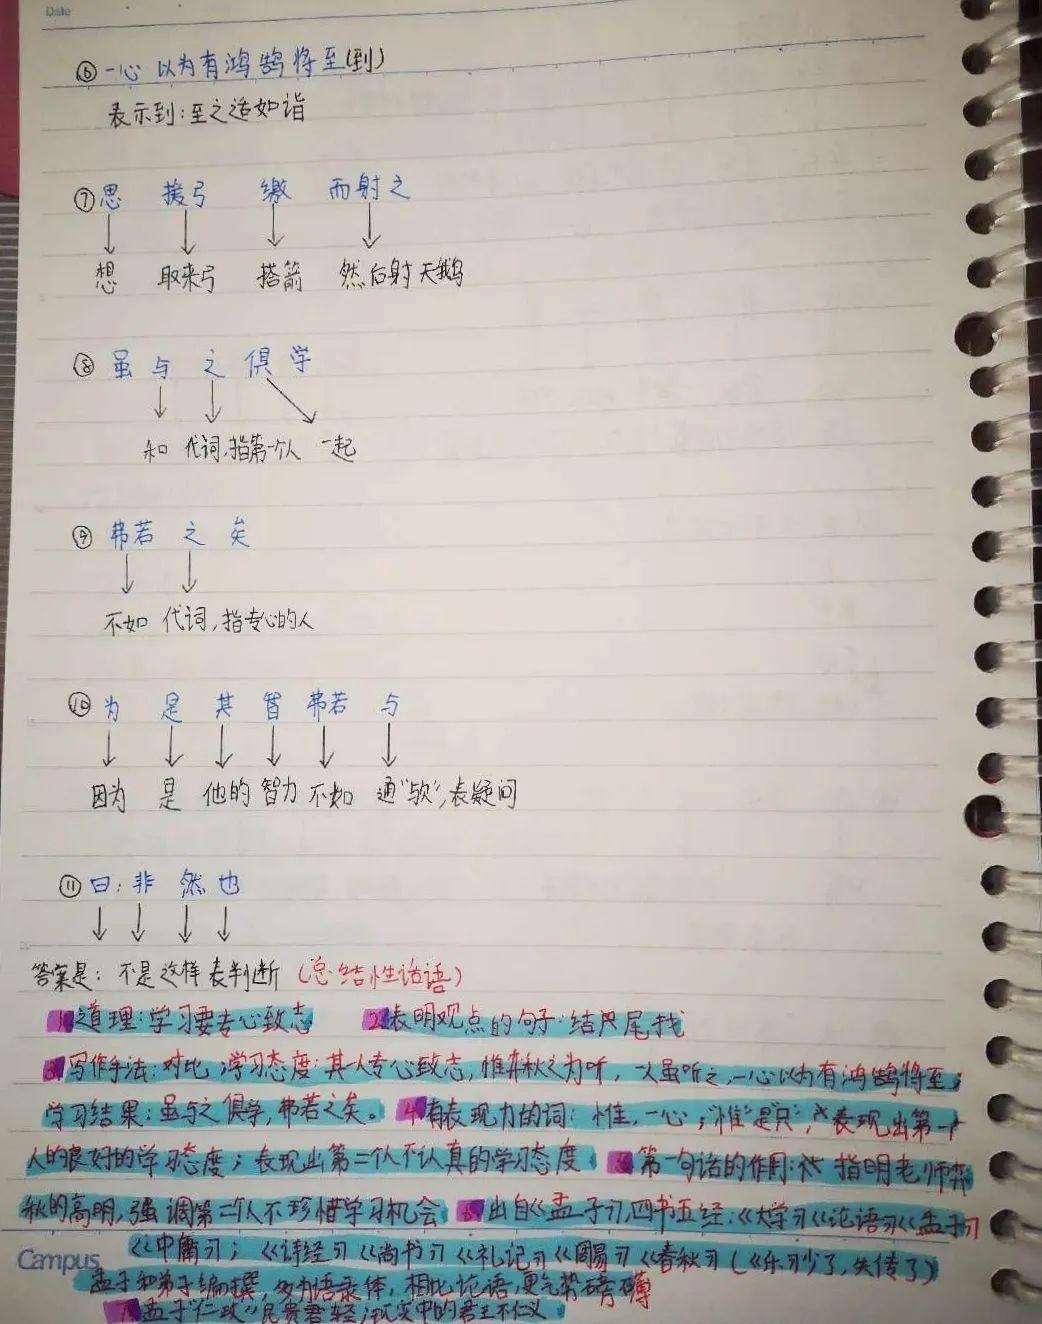 Date
⑥一心 以为有鸿鹄将至(到)
表示到:至之造如诣
⑦思 援弓 缴 而射之
想 取来弓 搭箭 然后射天鹅
⑧虽与 之 俱学
和 代词,指第一个人 一起
⑨弗若 之 矣
不如 代词,指专心的人
⑩为 是 其 智 弗若 与
因为 是 他的 智力 不如 通“欤”,表疑问
⑪曰:非 然 也
答案是: 不是这样 表判断 (总结性话语)
1.道理:学习要专心致志 2.表明观点的句子:结尾找
3.写作手法:对比,学习态度:其一人专心致志,惟弈秋之为听,一人虽听之,一心以为有鸿鹄将至;
学习结果:虽与之俱学,弗若之矣。 4.有表现力的词:惟,一心;“惟”是“只”,表现出第一个
人的良好的学习态度;表现出第二个人不认真的学习态度 第一句话的作用: 指明老师弈
秋的高明,强调第二个人不珍惜学习机会 6.出自《孟子》,四书五经:《大学》《论语》《孟子》
《中庸》;《诗经》《尚书》《礼记》《周易》《春秋》(《乐》少了,失传了)
Campus
孟子和弟子编撰,多为语录体,相比论语,更气势磅礴
7.孟子“仁政”民贵君轻;现实中的君王不仁义